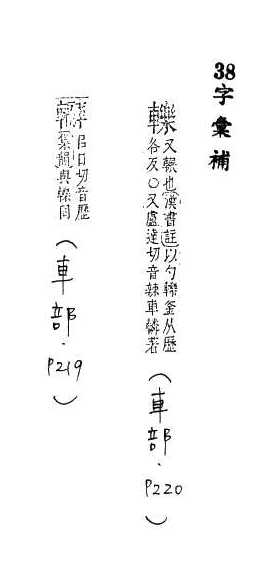 38字彙補
又輾也漢書註以勺轢釜从歷
各反○又盧達切音辣車轔者
(車部.P220)
日切音歷
集韻與轢同
(車部.P219)